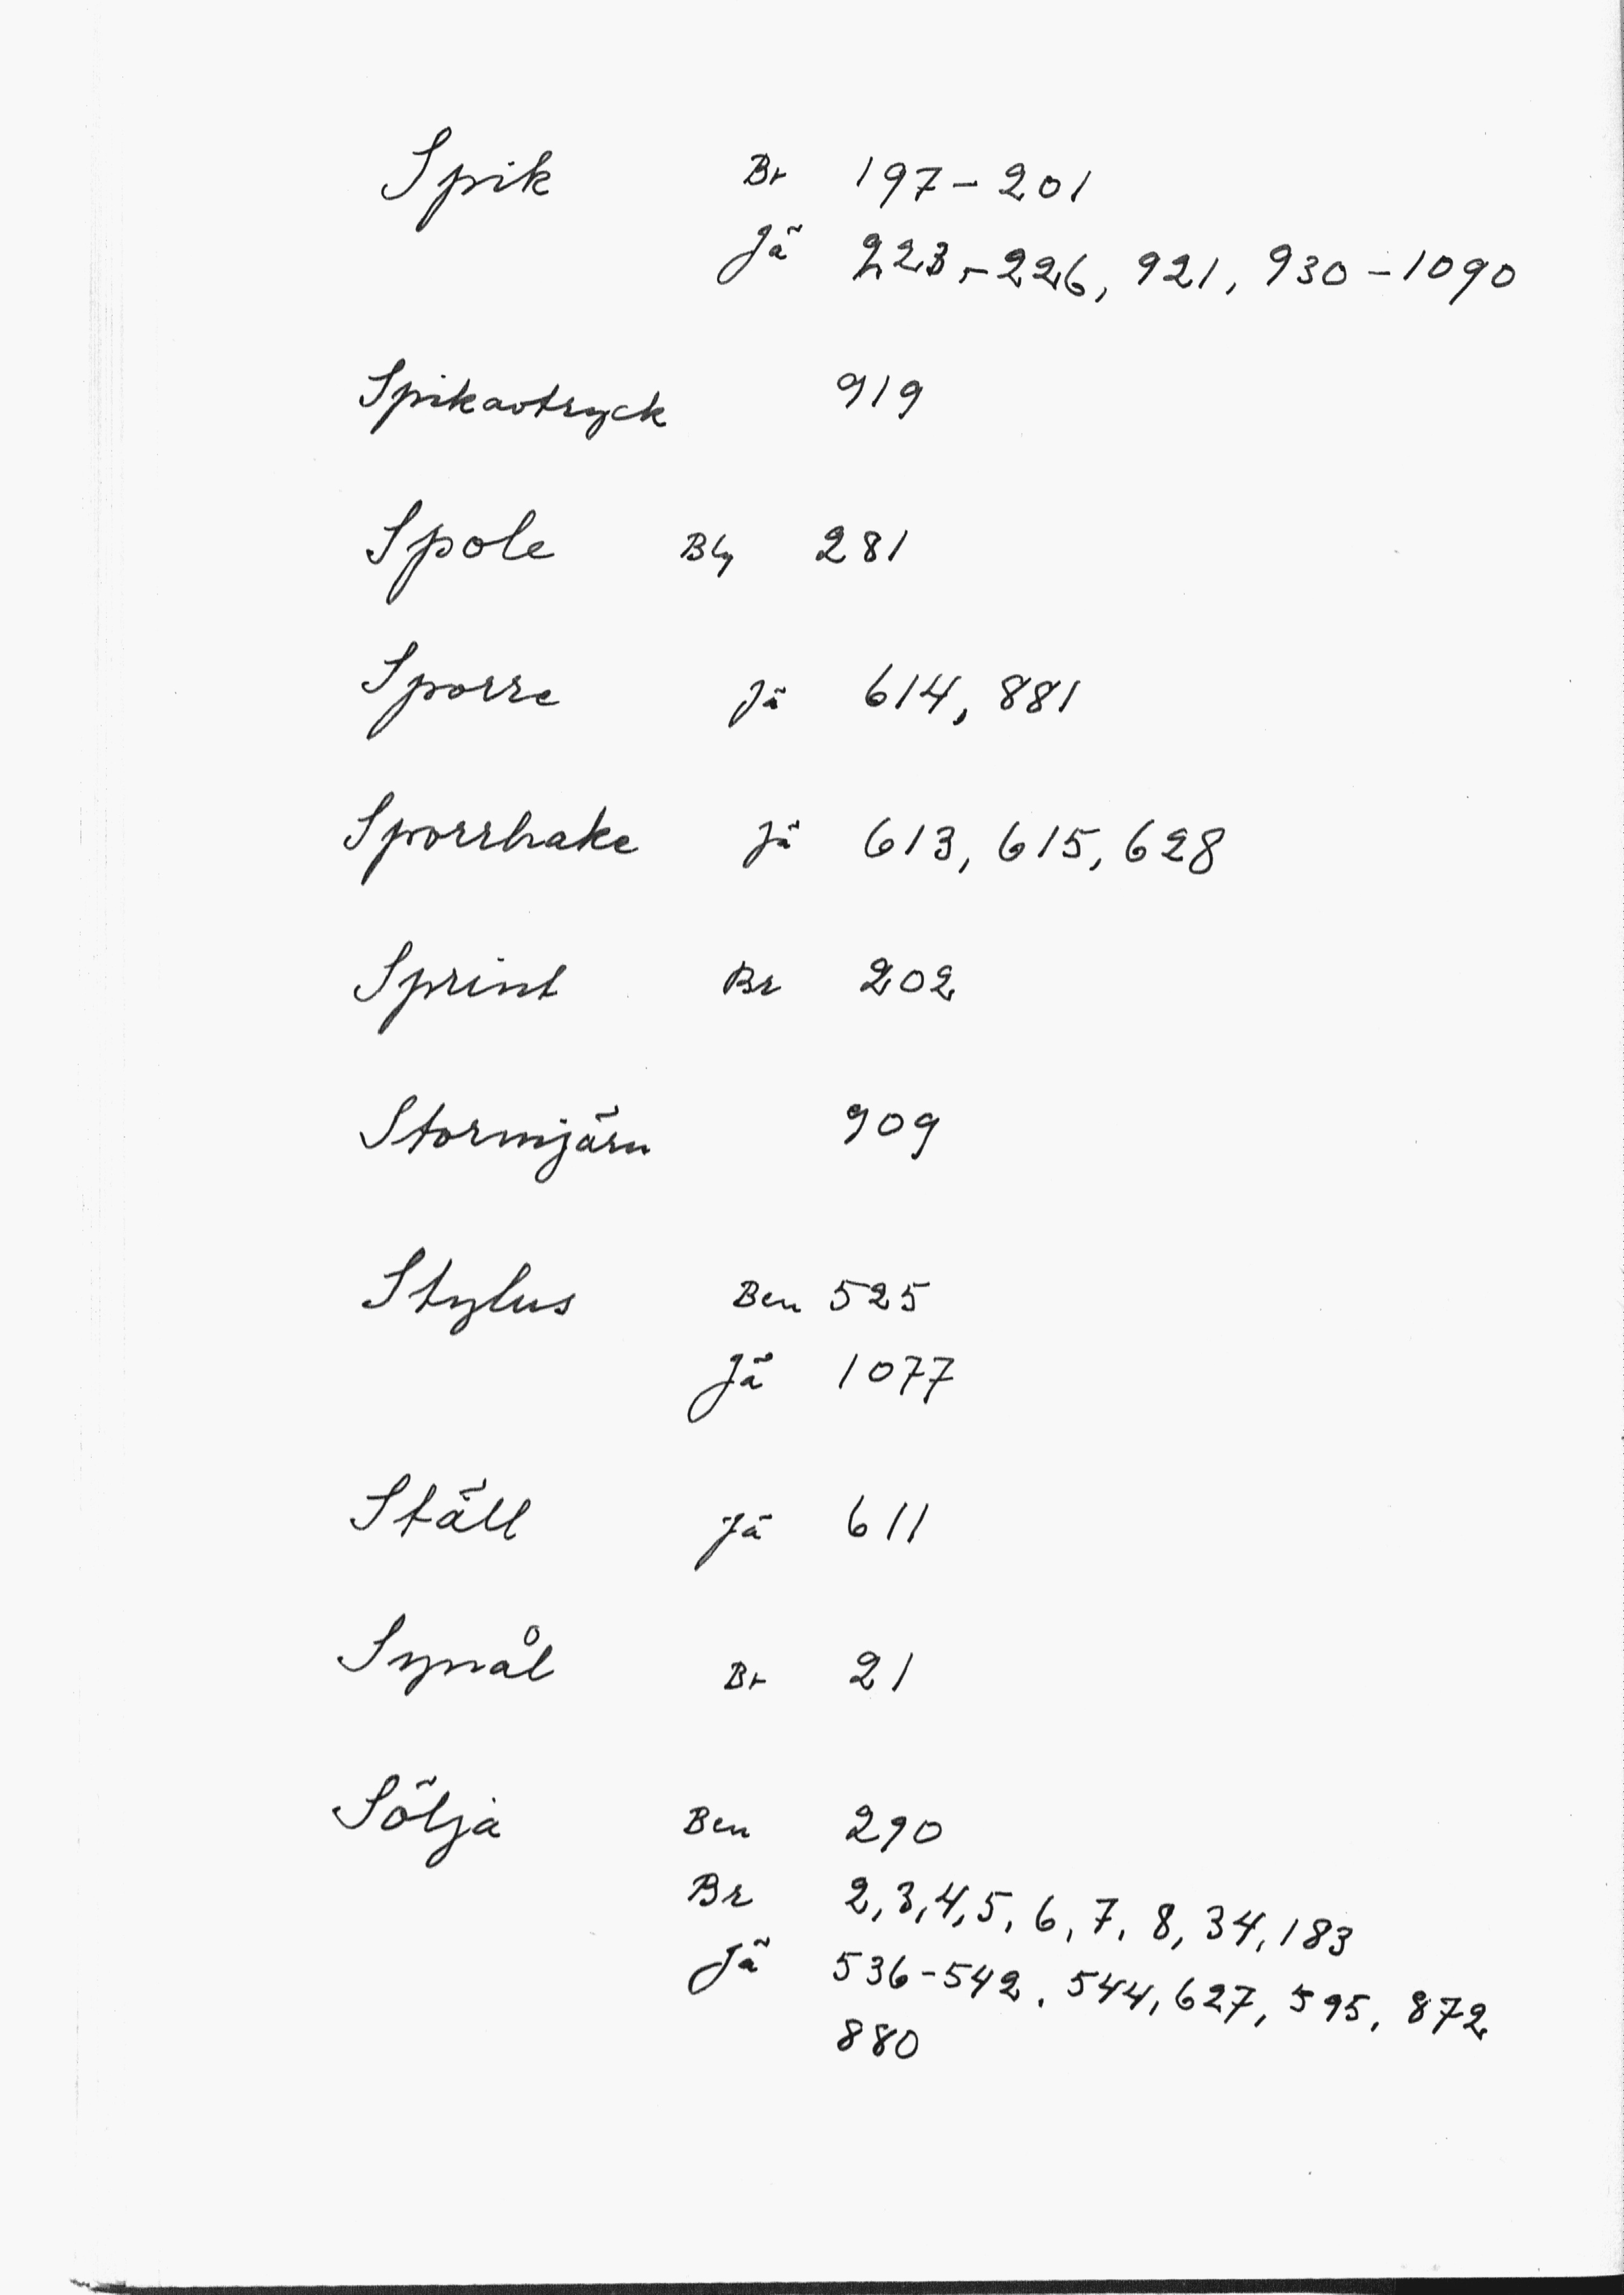 Spik Br 197-201
Jä 223-226, 921, 930-1090
Spikavtryck 919
Spole Bly 281
Sporre Jä 614, 881
Sporrhake Jä 613, 615, 628
Sprint Br 202
Stormjärn 909
Stylus Ben 525
Jä 1077
Ställ Jä 611
Synål Br 21
Sölja Ben 290
Br 2,3,4,5,6,7,8,34,183
Jä 536-542, 544, 627, 595, 872
880